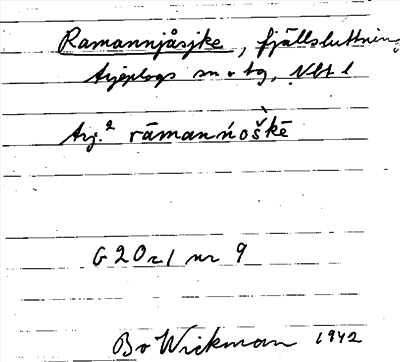 Ramannjåsjke, fjällsluttning
Arjeplogs sn o tg, Nbt l
Arj.² rāmanńoškē
G 20 r 1 nr 9
Bo Wickman 1942